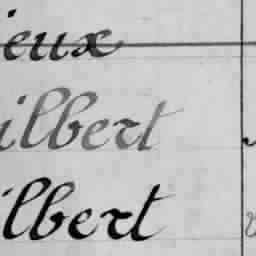 ieux
ilbert
ilbert